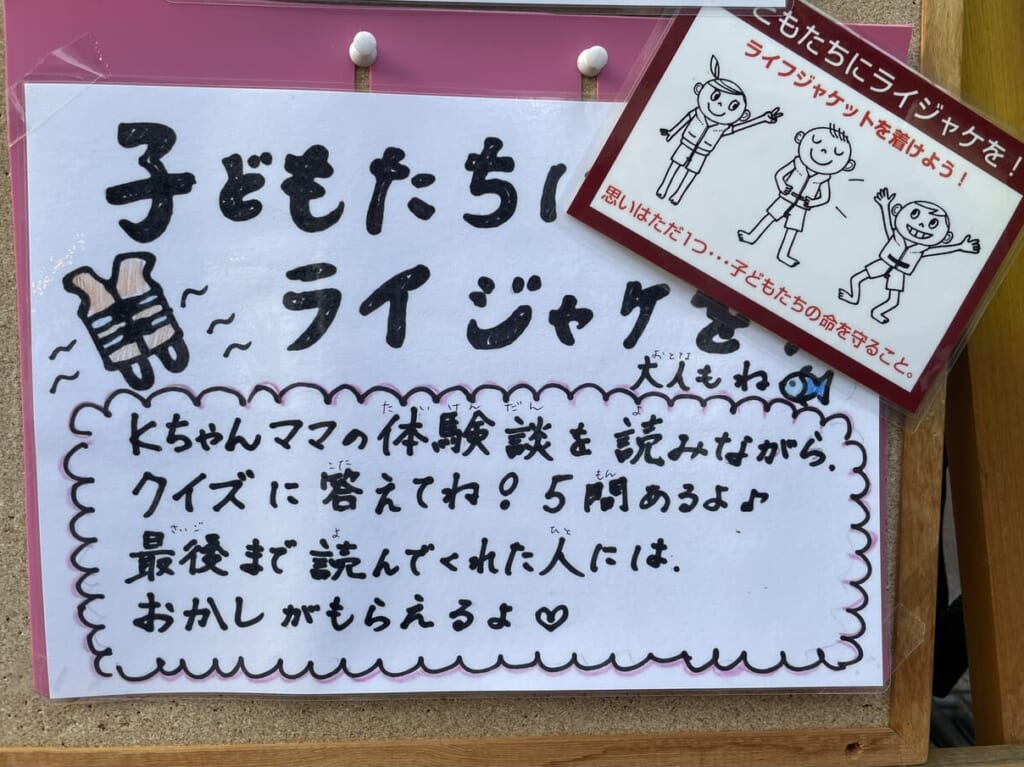 子どもたちに
ライジャケを!
大人もね
おとな
Kちゃんママの体験談を読みながら、
たいけんだん よ
クイズに答えてね! 5問あるよ♪
こた もん
最後まで読んでくれた人には、
さいご よ ひと
おかしがもらえるよ♡
こどもたちにライジャケを!
ライフジャケットを着けよう!
思いはただ1つ…子どもたちの命を守ること。